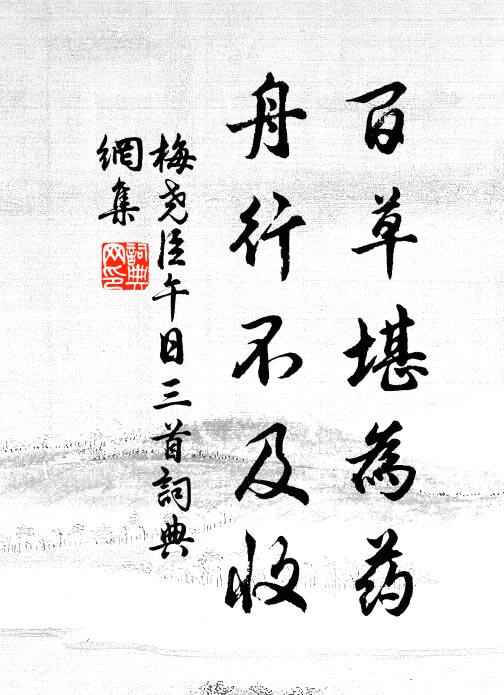 百草堪為药
舟行不及收
梅尧臣午日三首詞典
網集
詞典
网印